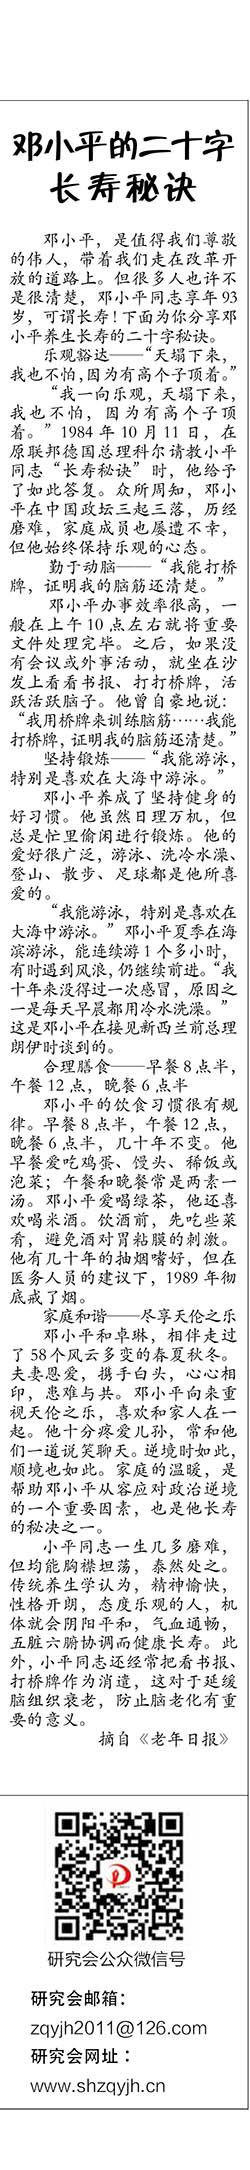 邓小平的二十字
长寿秘诀
邓小平，是值得我们尊敬
的伟人，带着我们走在改革开
放的道路上。但很多人也许不
是很清楚，邓小平同志享年 93
岁，可谓长寿！下面为你分享邓
小平养生长寿的二十字秘诀。
乐观豁达——“天塌下来，
我也不怕，因为有高个子顶着。”
“我一向乐观，天塌下来，
我也不怕，因为有高个子顶
着。” 1984 年 10 月 11 日，在
原联邦德国总理科尔请教小平
同志“长寿秘诀”时，他给予
了如此答复。众所周知，邓小
平在中国政坛三起三落，历经
磨难，家庭成员也屡遭不幸，
但他始终保持乐观的心态。
勤于动脑——“我能打桥
牌，证明我的脑筋还清楚。”
邓小平办事效率很高，一
般在上午 10 点左右就将重要
文件处理完毕。之后，如果没
有会议或外事活动，就坐在沙
发上看看书报、打打桥牌，活
跃活跃脑子。他曾自豪地说：
“我用桥牌来训练脑筋……我能
打桥牌，证明我的脑筋还清楚。”
坚持锻炼——“我能游泳，
特别是喜欢在大海中游泳。”
邓小平养成了坚持健身的
好习惯。他虽然日理万机，但
总是忙里偷闲进行锻炼。他的
爱好很广泛，游泳、洗冷水澡、
登山、散步、足球都是他所喜
爱的。
“我能游泳，特别是喜欢在
大海中游泳。” 邓小平夏季在海
滨游泳，能连续游 1 个多小时，
有时遇到风浪，仍继续前进。“我
十年来没得过一次感冒，原因之
一是每天早晨都用冷水洗澡。”
这是邓小平在接见新西兰前总理
朗伊时谈到的。
合理膳食——早餐 8 点半，
午餐 12 点，晚餐 6 点半
邓小平的饮食习惯很有规
律。早餐 8 点半，午餐 12 点，
晚餐 6 点半，几十年不变。他
早餐爱吃鸡蛋、馒头、稀饭或
泡菜；午餐和晚餐常是两素一
汤。邓小平爱喝绿茶，他还喜
欢喝米酒。饮酒前，先吃些菜
肴，避免酒对胃粘膜的刺激。
他有几十年的抽烟嗜好，但在
医务人员的建议下，1989 年彻
底戒了烟。
家庭和谐——尽享天伦之乐
邓小平和卓琳，相伴走过
了 58 个风云多变的春夏秋冬。
夫妻恩爱，携手白头，心心相
印，患难与共。邓小平向来重
视天伦之乐，喜欢和家人在一
起。他十分疼爱儿孙，常和他
们一道说笑聊天。逆境时如此，
顺境也如此。家庭的温暖，是
帮助邓小平从容应对政治逆境
的一个重要因素，也是他长寿
的秘决之一。
小平同志一生几多磨难，
但均能胸襟坦荡，泰然处之。
传统养生学认为，精神愉快，
性格开朗，态度乐观的人，机
体就会阴阳平和，气血通畅，
五脏六腑协调而健康长寿。此
外，小平同志还经常把看书报、
打桥牌作为消遣，这对于延缓
脑组织衰老，防止脑老化有重
要的意义。
摘自《老年日报》
研究会公众微信号
研究会邮箱：
zqyjh2011@126.com
研究会网址：
www.shzqyjh.cn